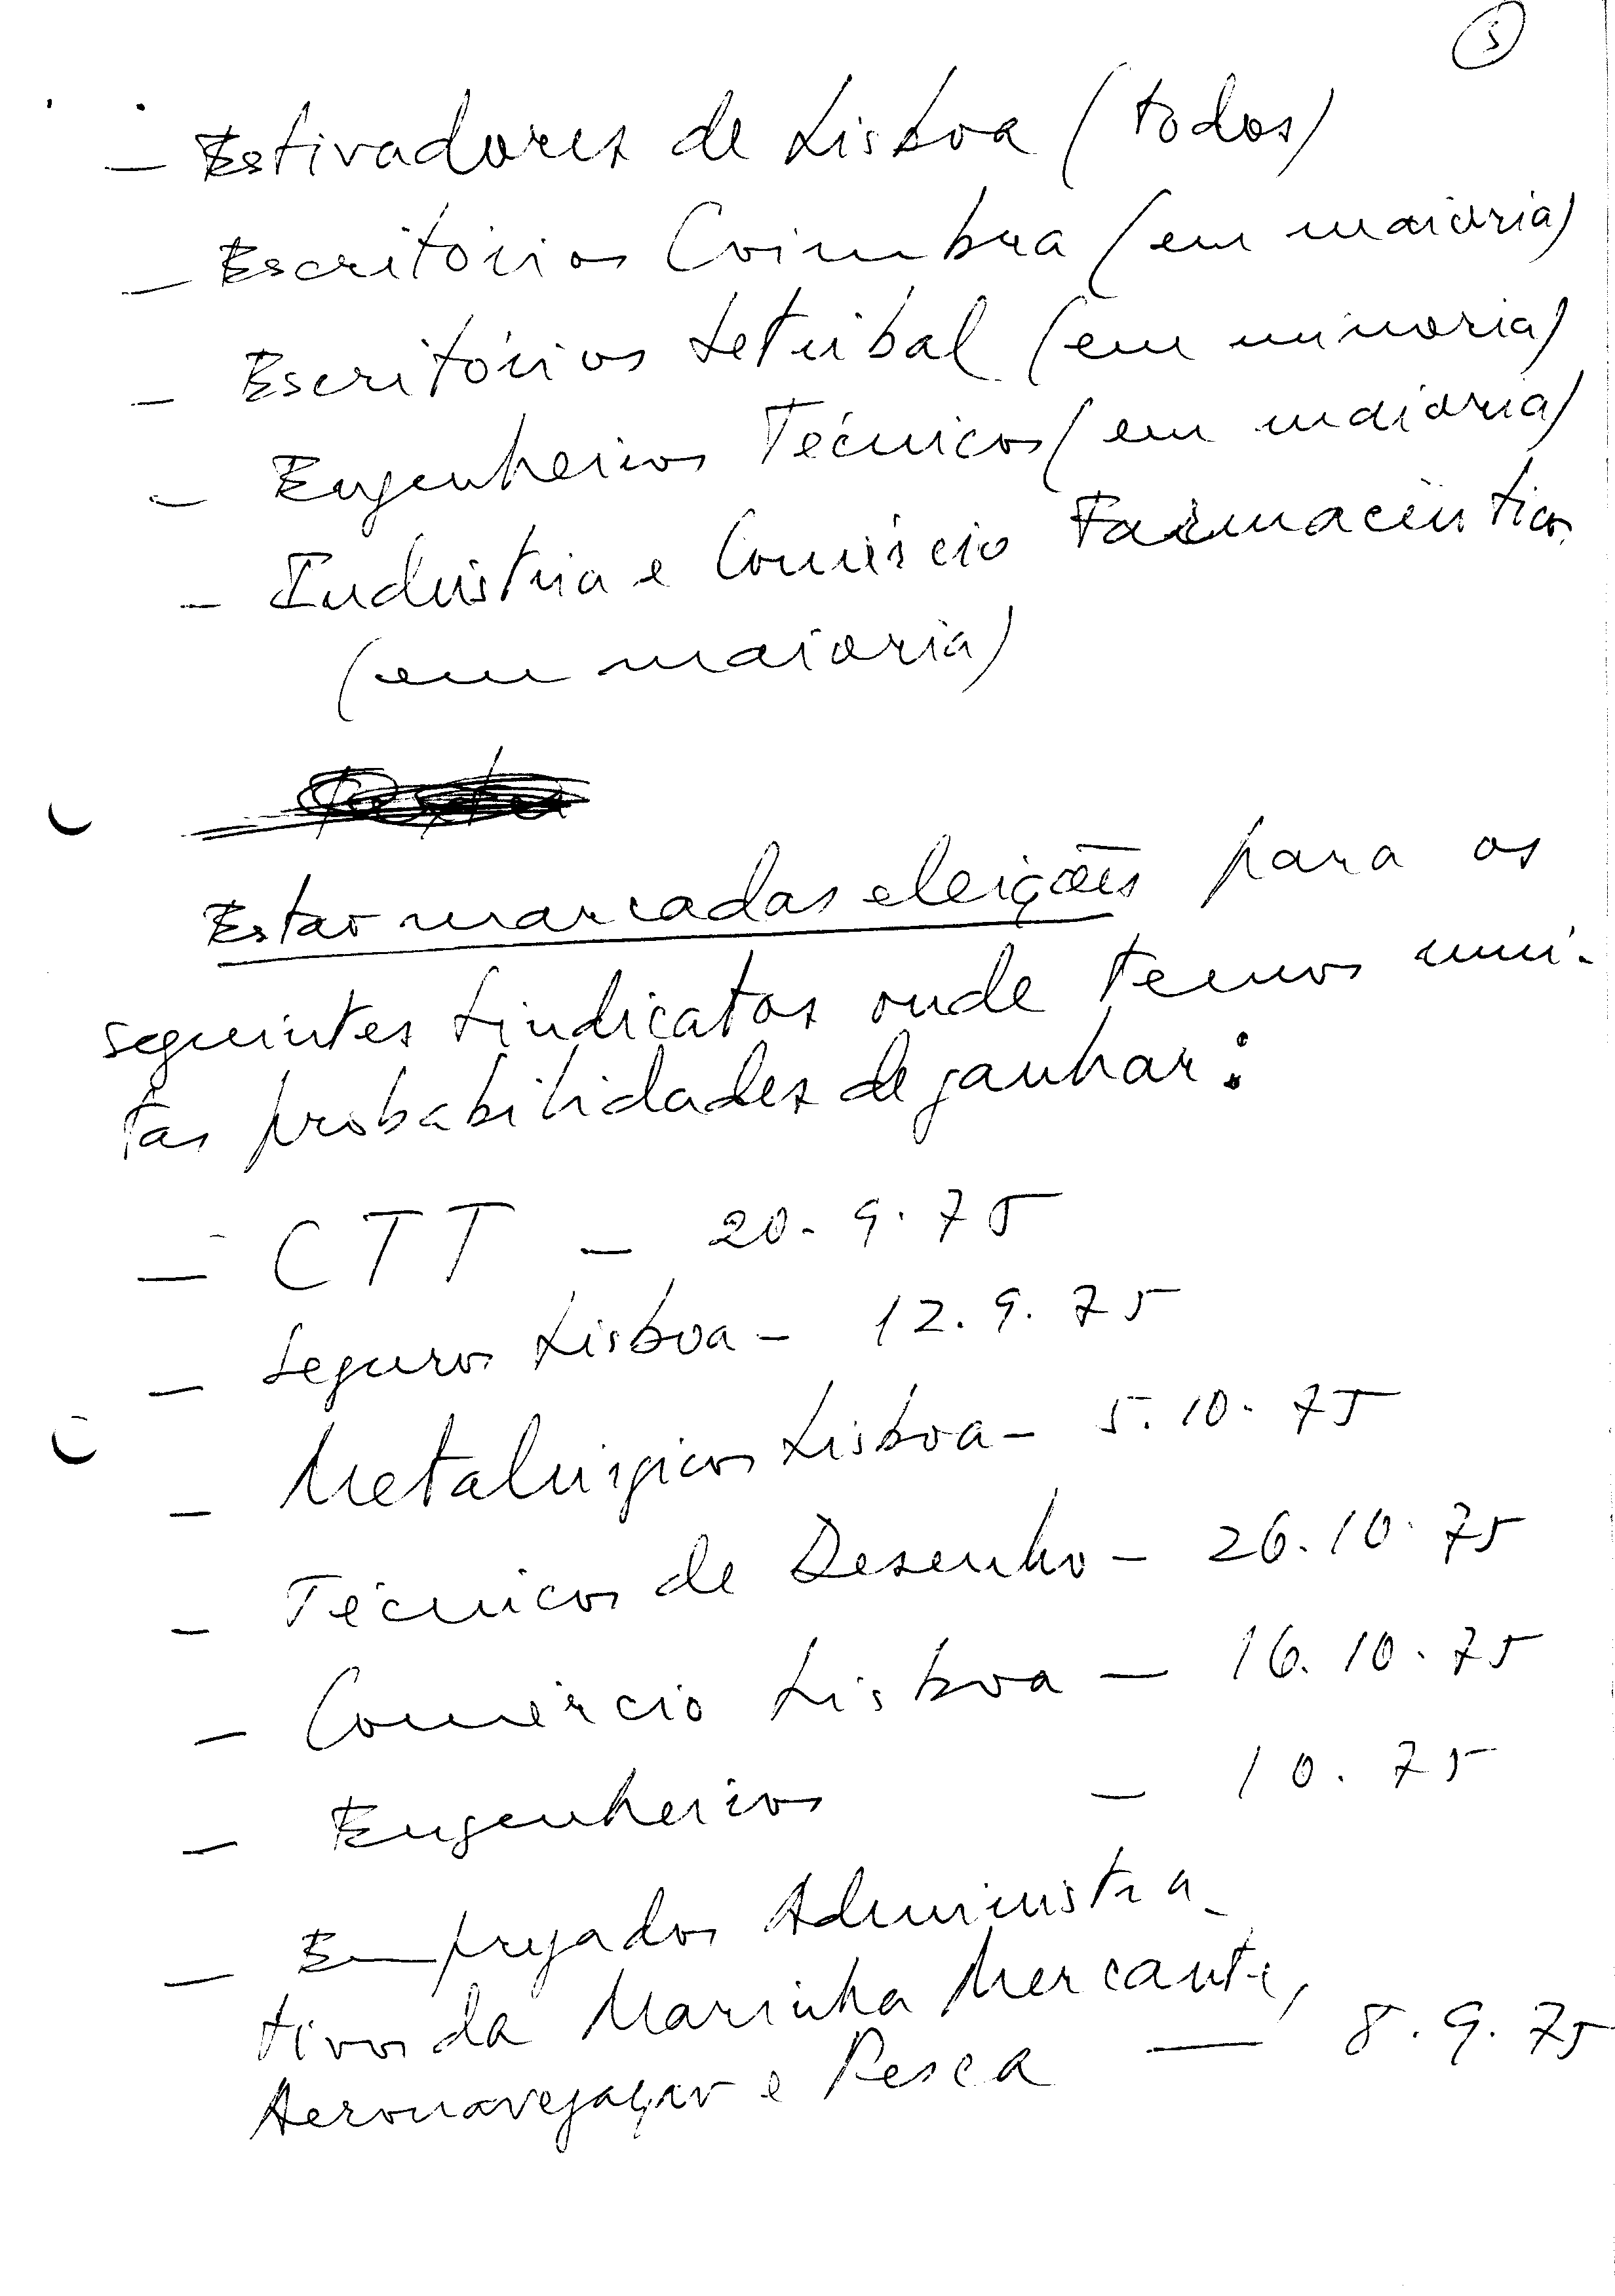 3
- Estivadores de Lisboa (todos)
- Escritórios Coimbra (em maioria)
- Escritórios Setúbal (em minoria)
- Engenheiros Técnicos (em maioria)
- Indústria e Comércio Farmacêutico
(em maioria)
Estão marcadas eleições para os
seguintes Sindicatos onde temos mui-
tas probabilidades de ganhar:
- CTT - 20.9.75
- Seguros Lisboa - 12.9.75
- Metalúrgicos Lisboa - 5.10.75
- Técnicos de Desenho - 26.10.75
- Comércio Lisboa - 16.10.75
- Engenheiros - 10.75
- Empregados Administra-
tivos da Marinha Mercante,
Aeronavegação e Pesca - 8.9.75